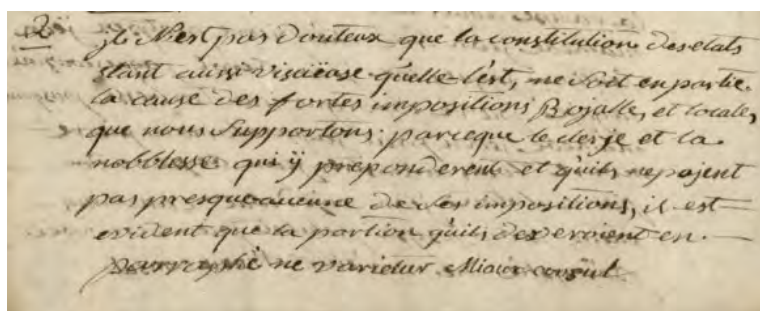 2
il N'est pas Douteux que la constitution Des etats
étant aussi visciëuse quelle l'est, ne soit en partie
la cause des fortes impositions Rojalle, et locale,
que nous Supportons. parceque le clerje et la
nobblesse qui ÿ preponderent et qu'ils ne pajent
pas presque aucune de ces impositions, il est
evident que la portion qu'ils deveroient en
parraphé ne varietur consul